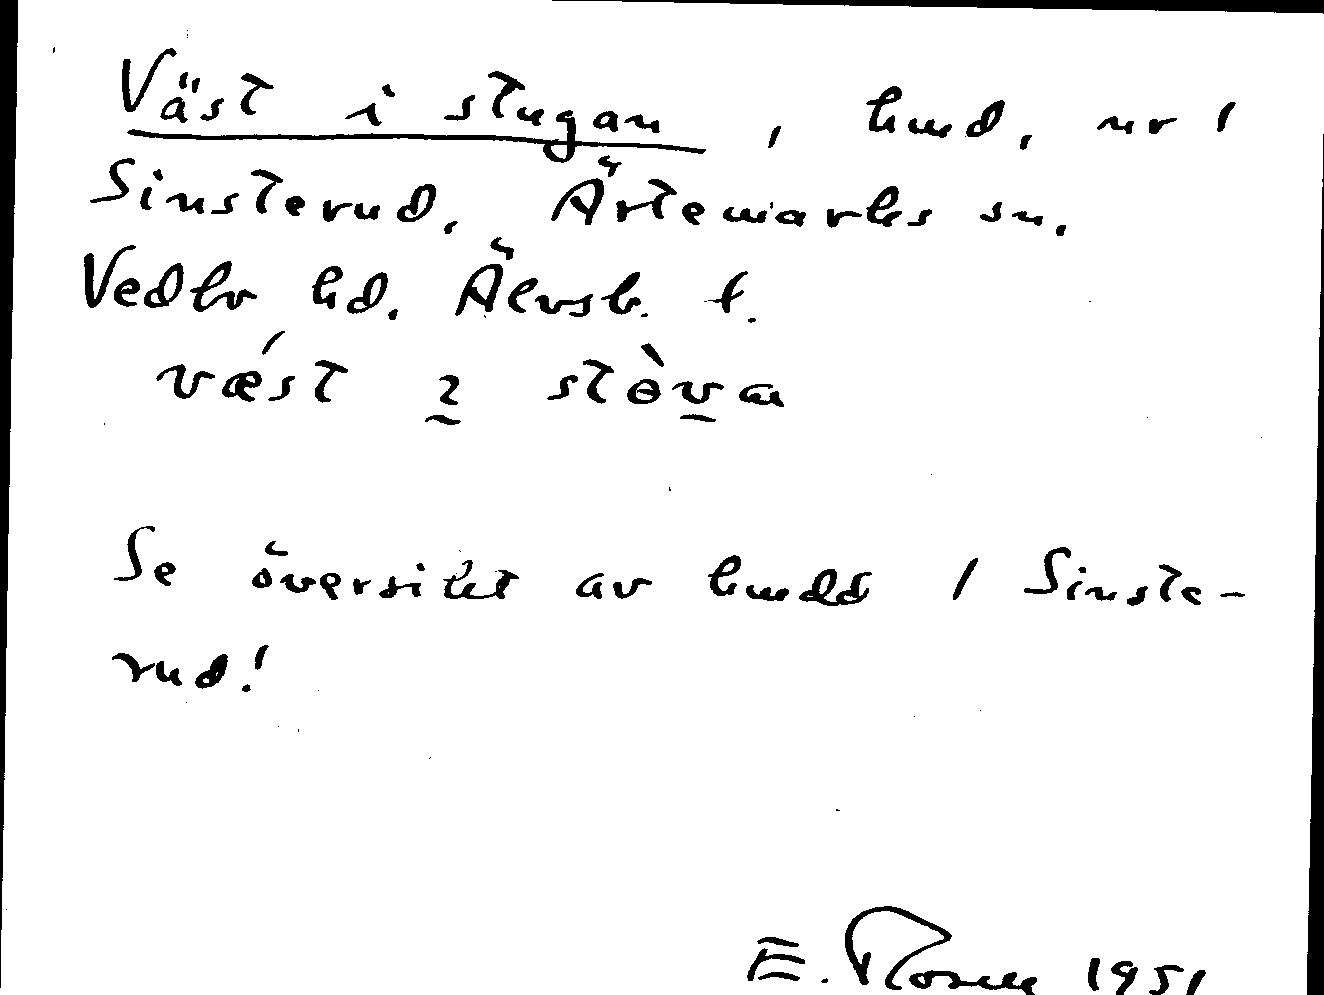 Väst i stugan, hmd. nr 1
Sinsterud, Ärtemarks sn.
Vedbo hd. Älvsb. l.
vǽst ɩ stɵ̀va
Se översikt av hmdd 1 Sinste-
rud!
E. Rosén 1951